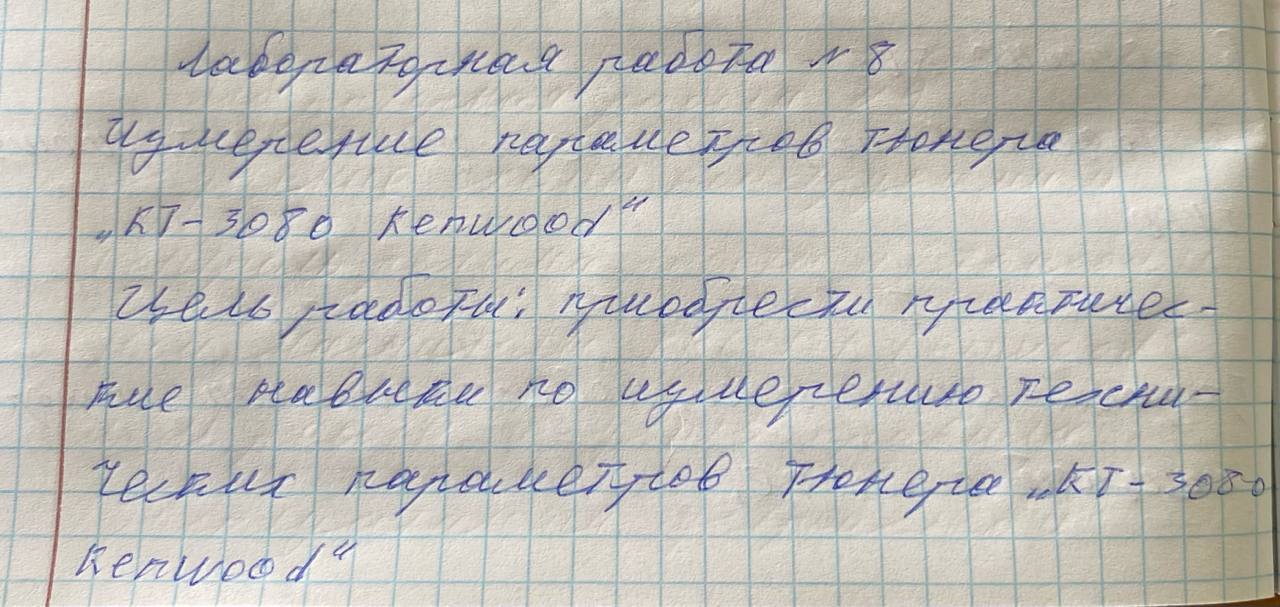 Лабораторная работа N 8
Измерение параметров тюнера
„KT-3080 Kenwood“
Цель работы: приобрести практичес-
кие навыки по измерению техни-
ческих параметров тюнера „KT-3080
Kenwood“